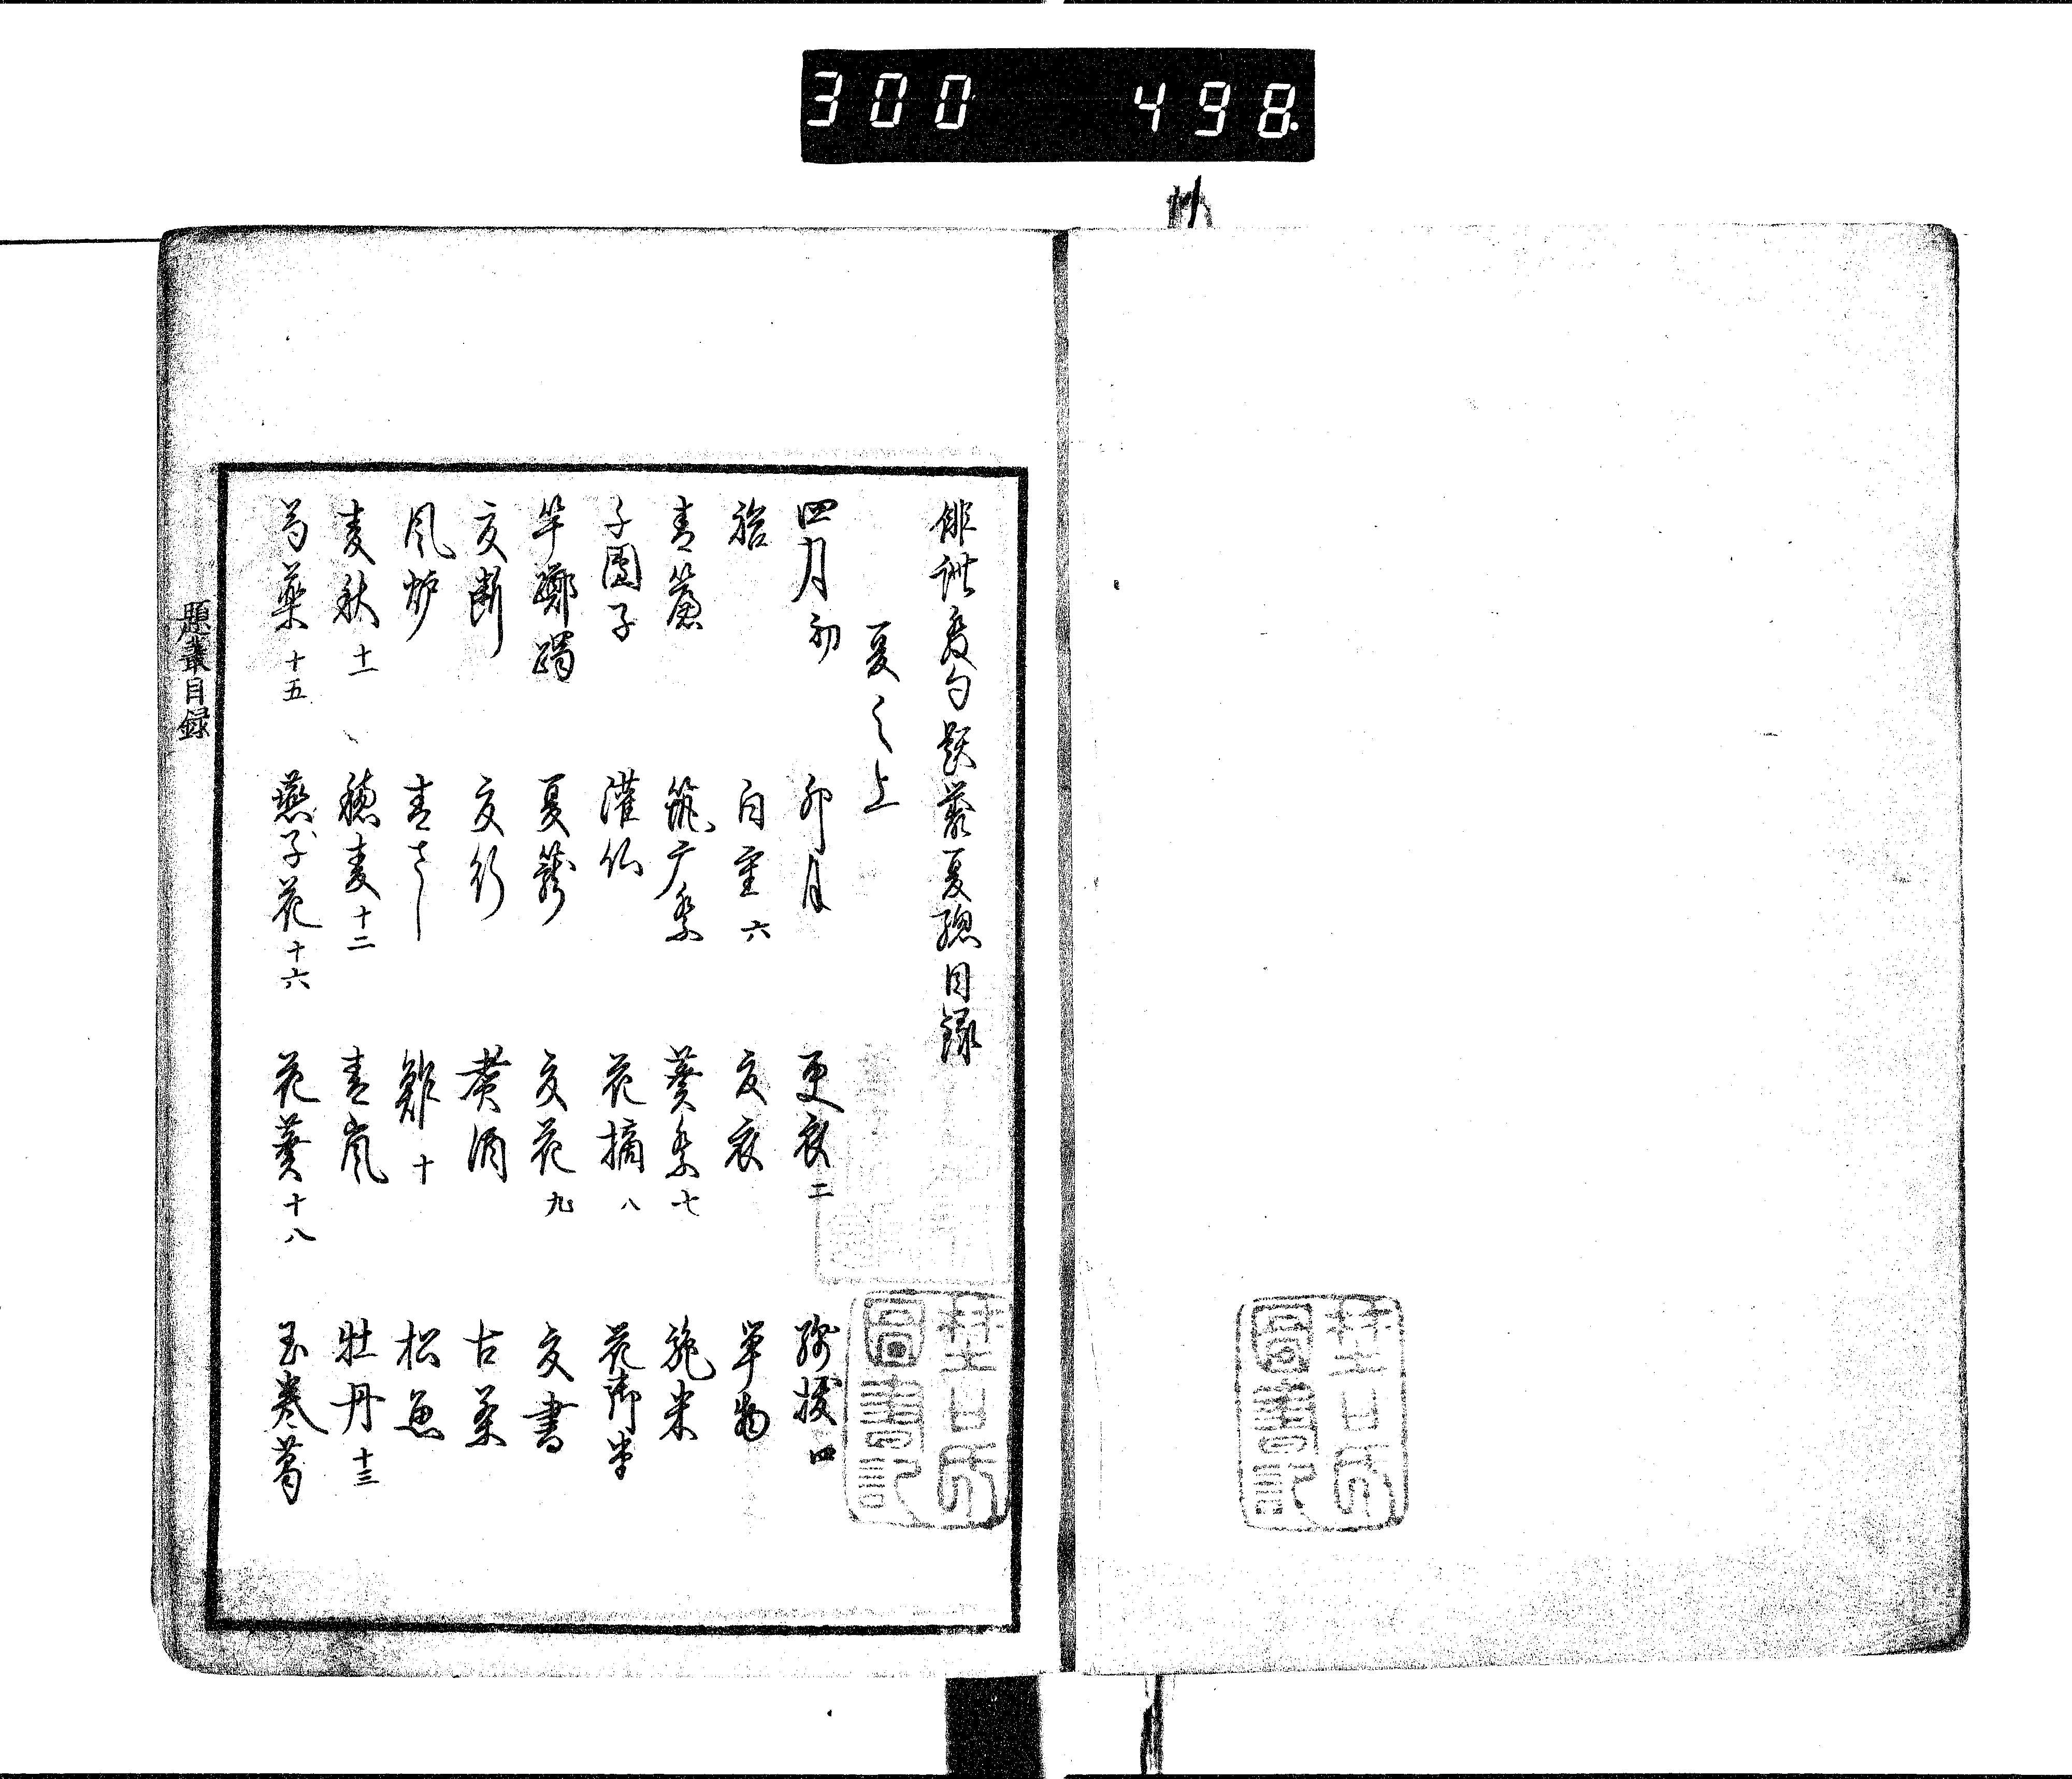 300 498.
俳諧発句題叢夏總目録
夏之上
四月初 卯月 更衣 二 綿抜 四
袷 白重 六 夏衣 単物
青簾 筑广祭 葵祭 七 施米
子團子 灌仏 花摘 八 花御堂
羊躑躅 夏籠 夏花 九 夏書
夏断 夏行 煮酒 古茶
風炉 青さし 鮓 十 松魚
麦秋 十一 穂麦 十二 青嵐 牡丹 十三
芍薬 十五 燕子花 十六 花葵 十八 玉巻葛
題叢目録
圖書記
圖書記